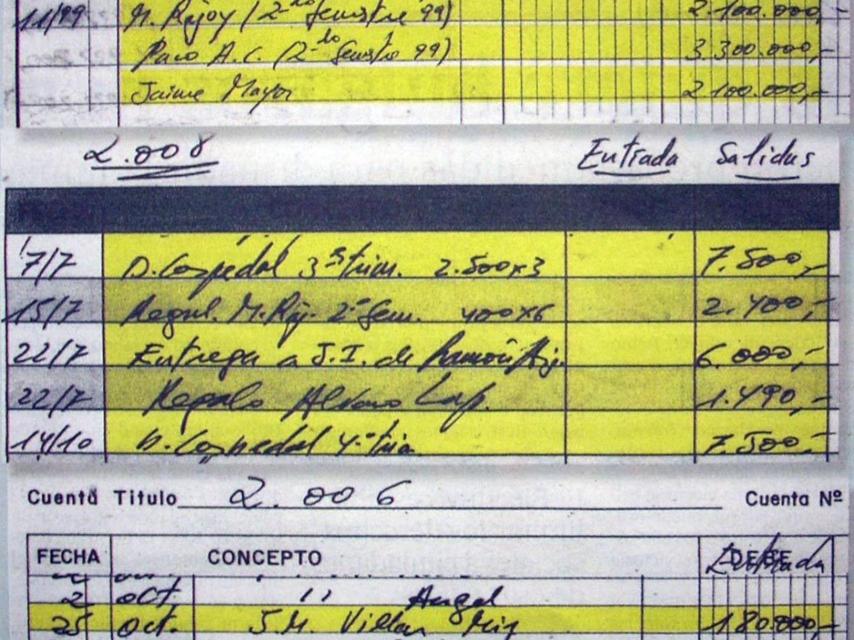 11/99 M. Rajoy (2º Semestre 99) 2.100.000,-
Paco A.C. (2º Semestre 99) 3.300.000,-
Jaime Mayor 2.100.000,-
2.008 Entrada Salidas
7/7 D. Cospedal 3º trim. 2.500x3 7.500,-
15/7 M. Raj. 2º Sem. 400x6 2.400,-
22/7 Entrega a J.I. de 6.000,-
22/7 Regalo Alvaro Lap. 1.490,-
14/10 D. Cospedal 4º trim. 7.500,-
Cuenta Titulo 2.006 Cuenta Nº
FECHA CONCEPTO DEBE Entrada
2 oct. " Angel
25 oct. J.M. Villar Mir 180.000-